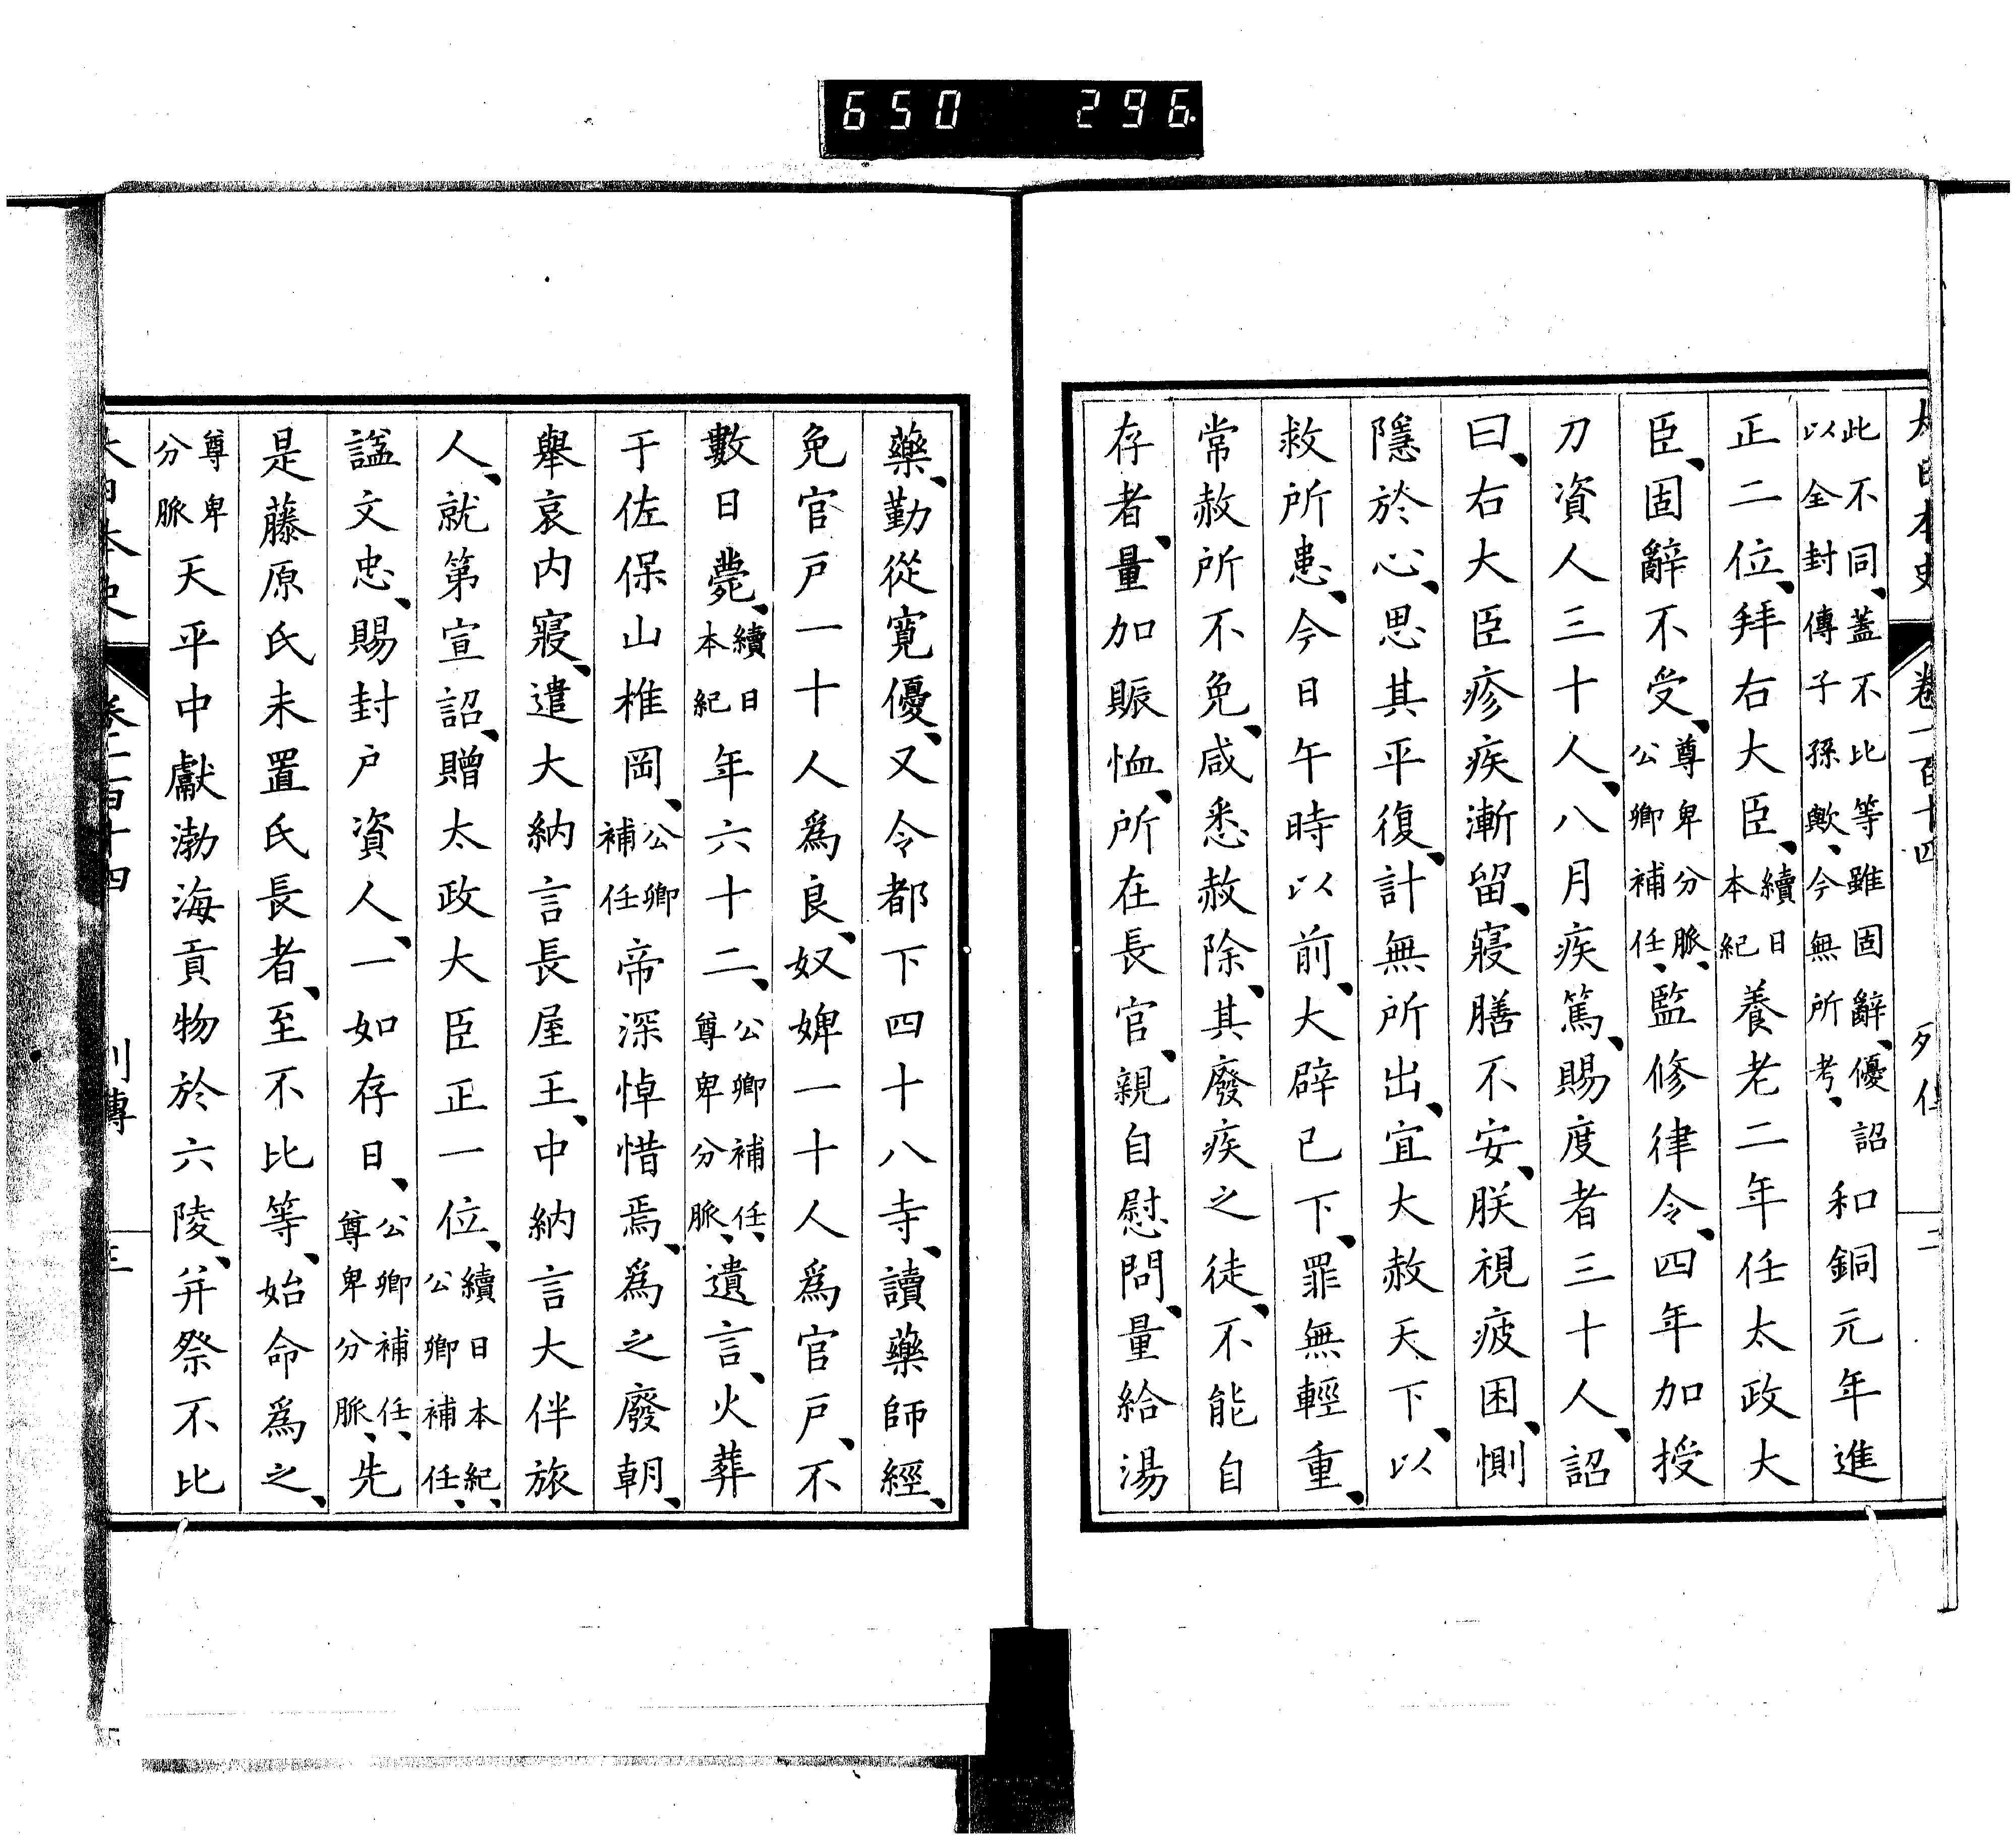 650 296.
大日本史 卷一百十四 列傳 二
此不同、蓋不比等雖固辭、優詔
以全封傳子孫歟、今無所考、
和銅元年進
正二位、拜右大臣、續日本紀養老二年任太政大
臣、固辭不受、尊卑分脈、公卿補任、監修律令、四年加授
刀資人三十人、八月疾篤、賜度者三十人、詔
曰、右大臣疹疾漸留、寢膳不安、朕視疲困、惻
隱於心、思其平復、計無所出、宜大赦天下、以
救所患、今日午時以前、大辟已下、罪無輕重、
常赦所不免、咸悉赦除、其廢疾之徒、不能自
存者、量加賑恤、所在長官、親自慰問、量給湯
藥、勤從寬優、又令都下四十八寺、讀藥師經、
免官戶一十人爲良、奴婢一十人爲官戶、不
數日薨、續日本紀年六十二、公卿補任、尊卑分脈、遺言、火葬
于佐保山椎岡、公卿補任帝深悼惜焉、爲之廢朝、
舉哀內寢、遣大納言長屋王、中納言大伴旅
人、就第宣詔、贈太政大臣正一位、續日本紀、公卿補任、
諡文忠、賜封戶資人、一如存日、公卿補任、尊卑分脈、先
是藤原氏未置氏長者、至不比等、始命爲之、
尊卑分脈天平中獻渤海貢物於六陵、并祭不比
大日本史 卷一百十四 列傳 三